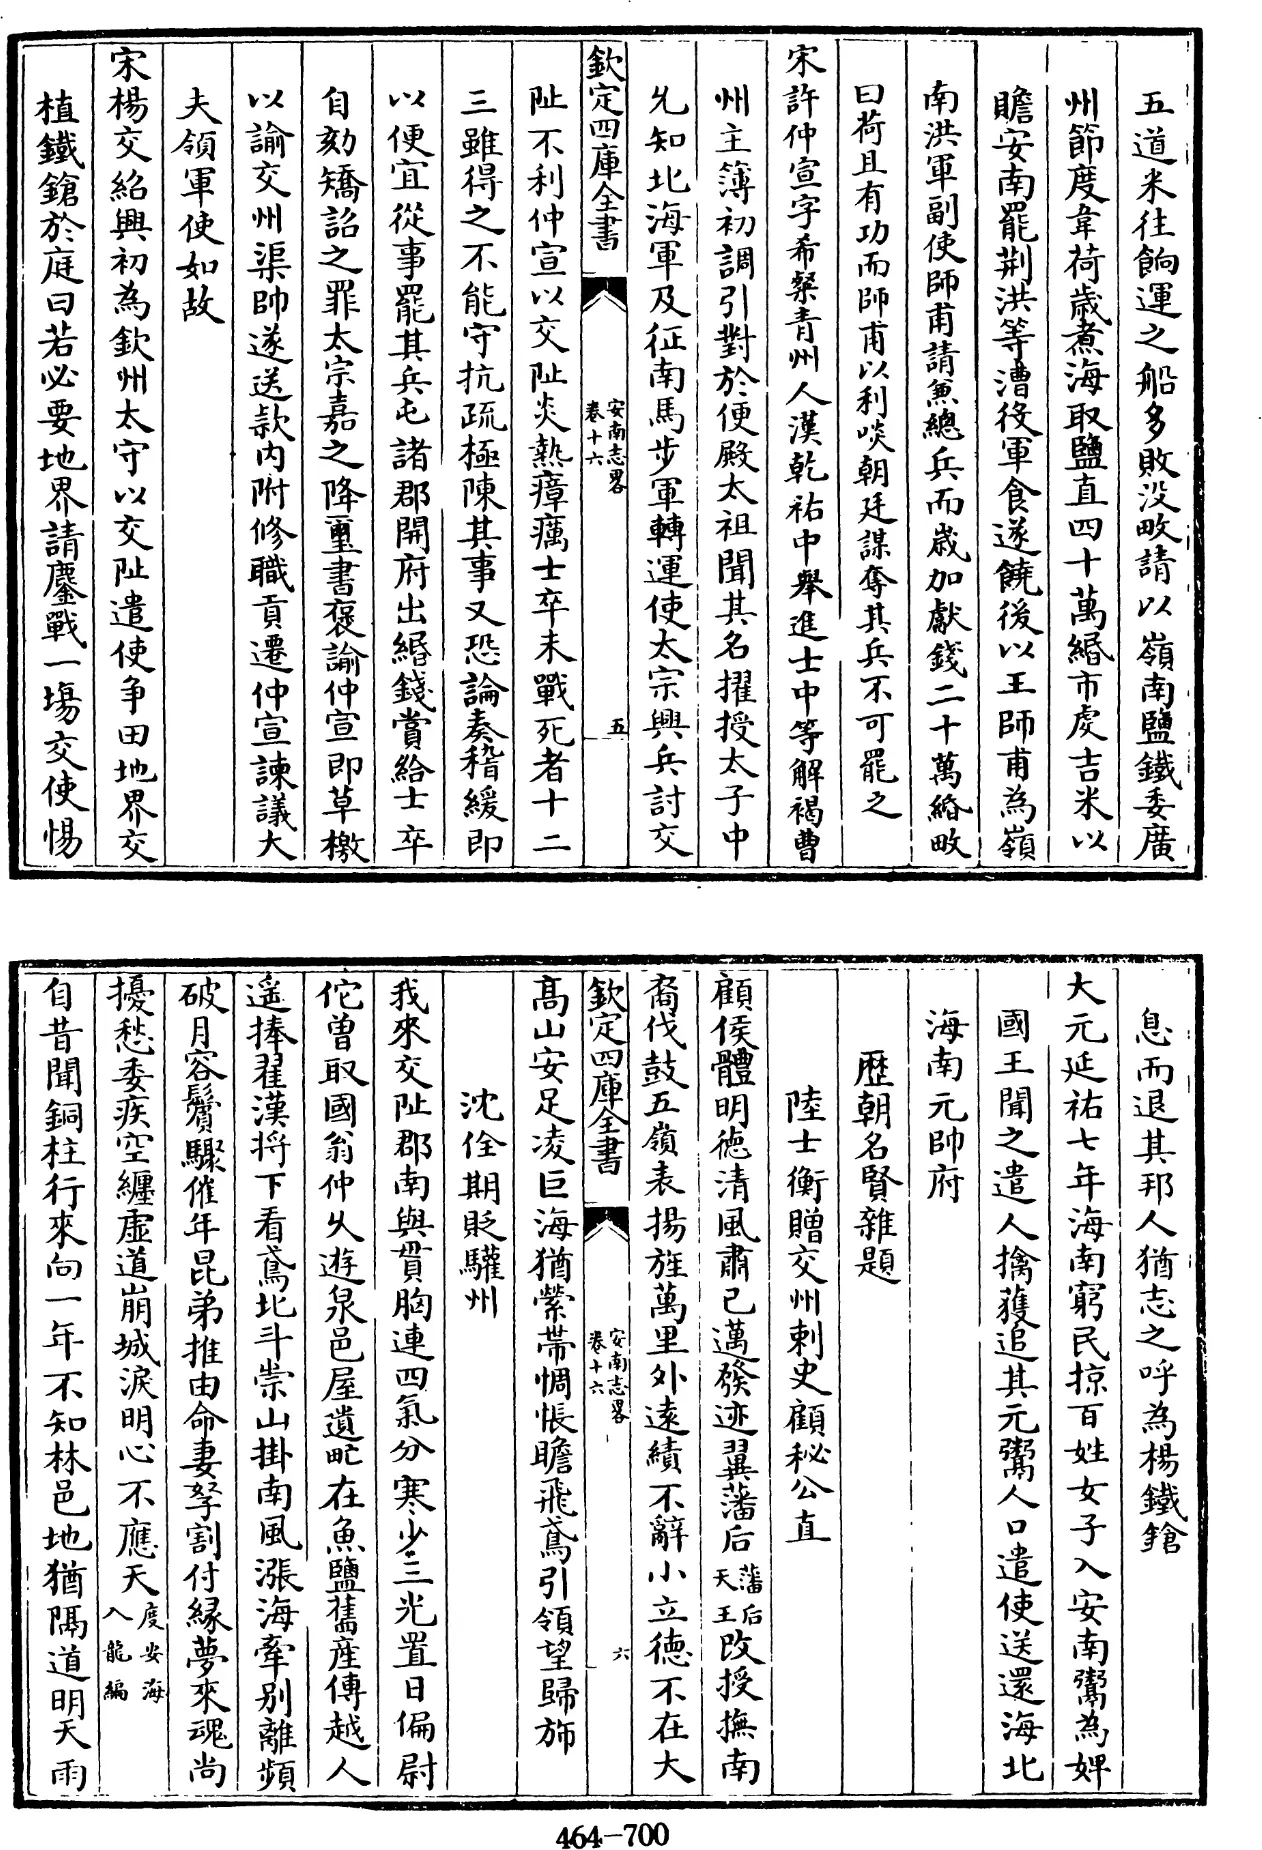 五道米往餉運之船多敗没畋請以嶺南鹽鐵委廣
州節度韋荷歳煮海取鹽直四十萬緡市虔吉米以
贍安南罷荆洪等漕役軍食遂饒後以王師甫為嶺
南洪軍副使師甫請兼總兵而歳加獻錢二十萬緡畋
曰荷且有功而師甫以利啖朝廷謀奪其兵不可罷之
宋許仲宣字希粲青州人漢乾祐中舉進士中等解褐曹
州主簿初調引對於便殿太祖聞其名擢授太子中
允知北海軍及征南馬步軍轉運使太宗興兵討交
欽定四庫全書
安南志畧
卷十六
五
阯不利仲宣以交阯炎熱瘴癘士卒未戰死者十二
三雖得之不能守抗疏極陳其事又恐論奏稽緩即
以便宜從事罷其兵屯諸郡開府出緡錢賞給士卒
自劾矯詔之罪太宗嘉之降璽書褒諭仲宣即草檄
以諭交州渠帥遂送款内附修職貢遷仲宣諫議大
夫領軍使如故
宋楊交紹興初為欽州太守以交阯遣使争田地界交
植鐵鎗於庭曰若必要地界請鏖戰一場交使惕
息而退其邦人猶志之呼為楊鐵鎗
大元延祐七年海南窮民掠百姓女子入安南鬻為婢
國王聞之遣人擒獲追其元鬻人口遣使送還海北
海南元帥府
歴朝名賢雜題
陸士衡贈交州刺史顧秘公直
顧侯體明徳清風肅已邁發迹翼藩后
藩后
天王
改授撫南
裔伐鼓五嶺表揚旌萬里外逺績不辭小立徳不在大
欽定四庫全書
安南志畧
卷十六
六
髙山安足凌巨海猶縈帶惆悵瞻飛鳶引領望歸斾
沈佺期貶驩州
我來交阯郡南與貫胸連四氣分寒少三光置日偏尉
佗曾取國翁仲乆遊泉邑屋遺甿在魚鹽舊産傳越人
遥捧翟漢将下看鳶北斗崇山掛南風漲海牽别離頻
破月容鬢驟催年昆弟推由命妻孥割付縁夢來魂尚
擾愁委疾空纒虚道崩城淚明心不應天
度安海
入龍編
自昔聞銅柱行來向一年不知林邑地猶隔道明天雨
464-700